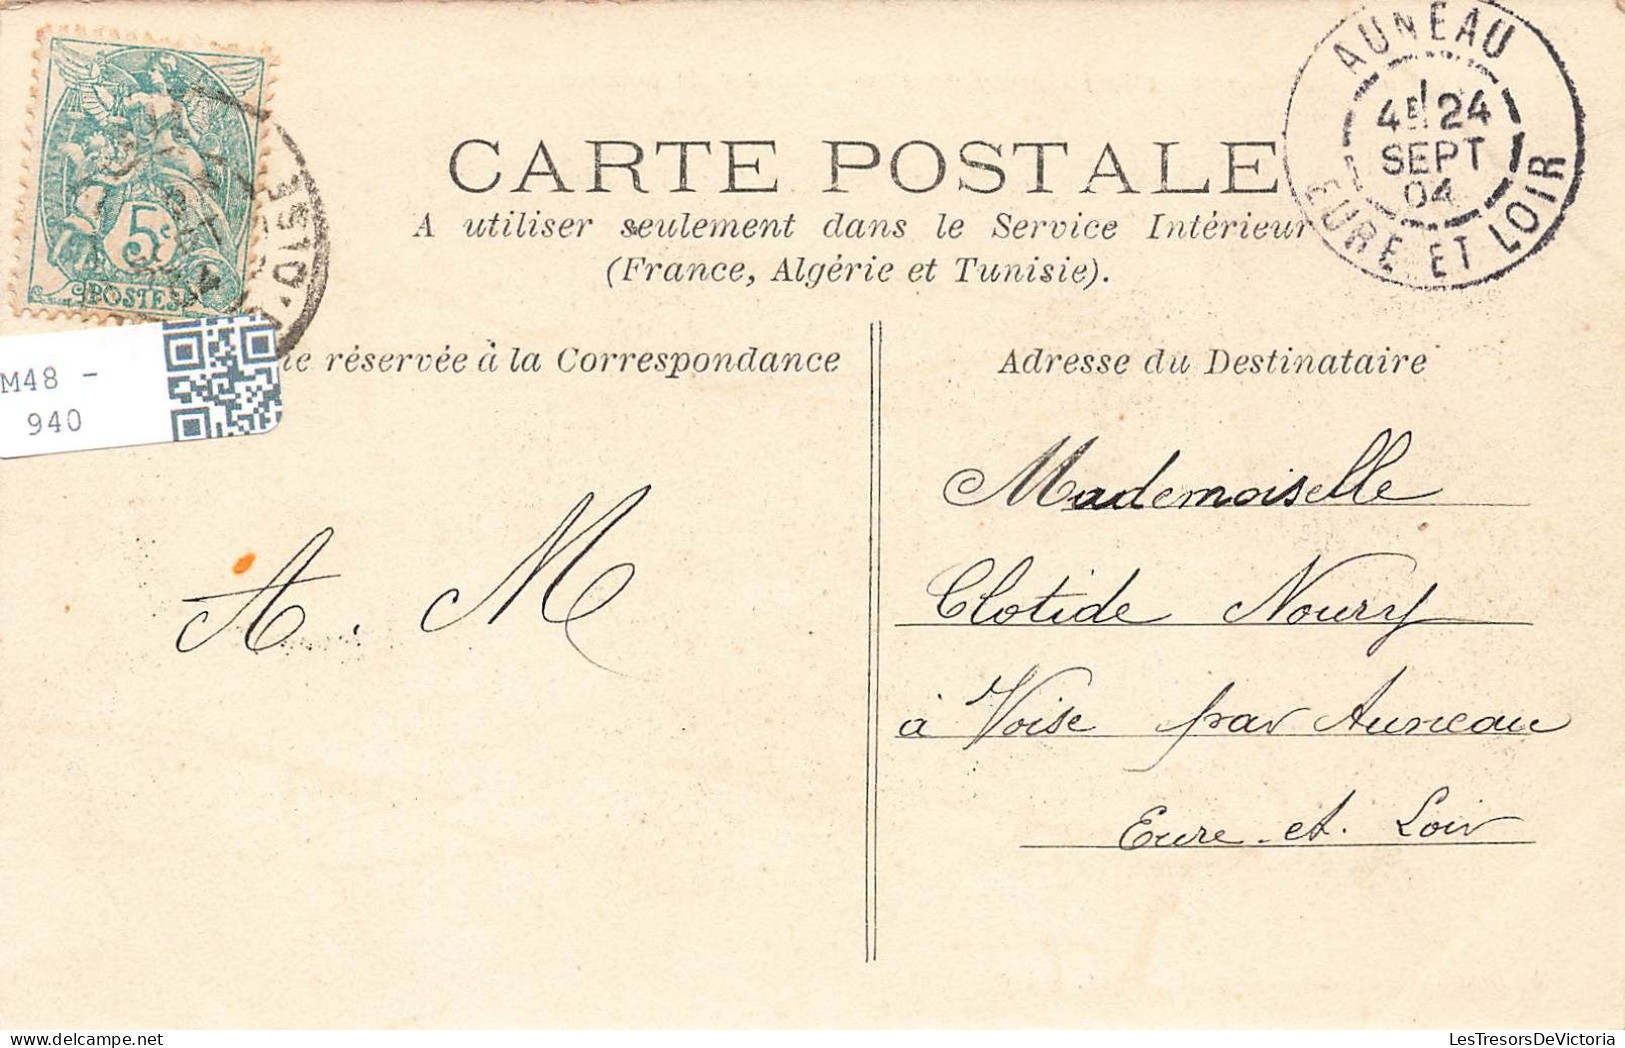 AUNEAU
4E 24
SEPT
04
EURE ET LOIR
5c
POSTES
OISE
CARTE POSTALE
A utiliser seulement dans le Service Intérieur
(France, Algérie et Tunisie).
M48 -
940
réservée à la Correspondance
Adresse du Destinataire
A. M
Mademoiselle
Clotide Noury
à Voise par Auneau
Eure-et. Loir
LesTresorsDeVictoria